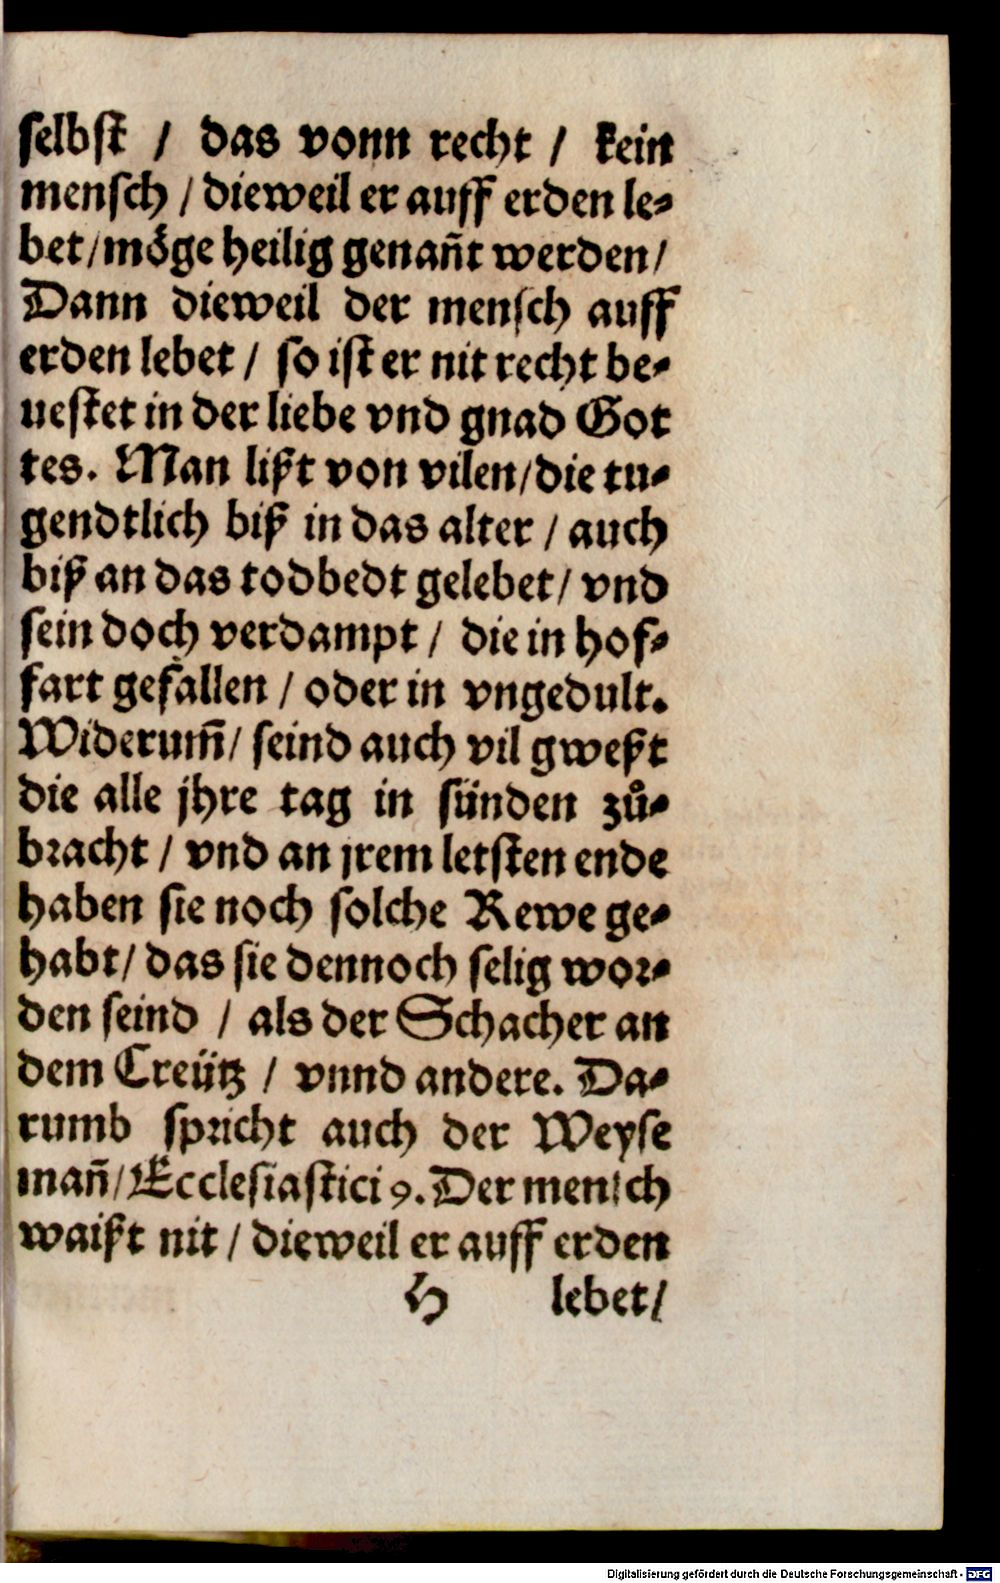 selbst / das vonn recht / kein
mensch / dieweil er auff erden le⸗
bet / möge heilig genañt werden /
Dann dieweil der mensch auff
erden lebet / so ist er nit recht be⸗
uestet in der liebe vnd gnad Got
tes. Man lißt von vilen / die tu⸗
gendtlich biß in das alter / auch
biß an das todbedt gelebet / vnd
sein doch verdampt / die in hof⸗
fart gefallen / oder in vngedult.
Widerum̃ / seind auch vil gweßt
die alle jhre tag in sünden zů⸗
bracht / vnd an jrem letsten ende
haben sie noch solche Rewe ge⸗
habt / das sie dennoch selig wor⸗
den seind / als der Schacher an
dem Creütz / vnnd andere. Da⸗
rumb spricht auch der Weyse
mañ / Ecclesiastici 9. Der mensch
waißt nit / dieweil er auff erden
H lebet /
Digitalisierung gefördert durch die Deutsche Forschungsgemeinschaft - DFG